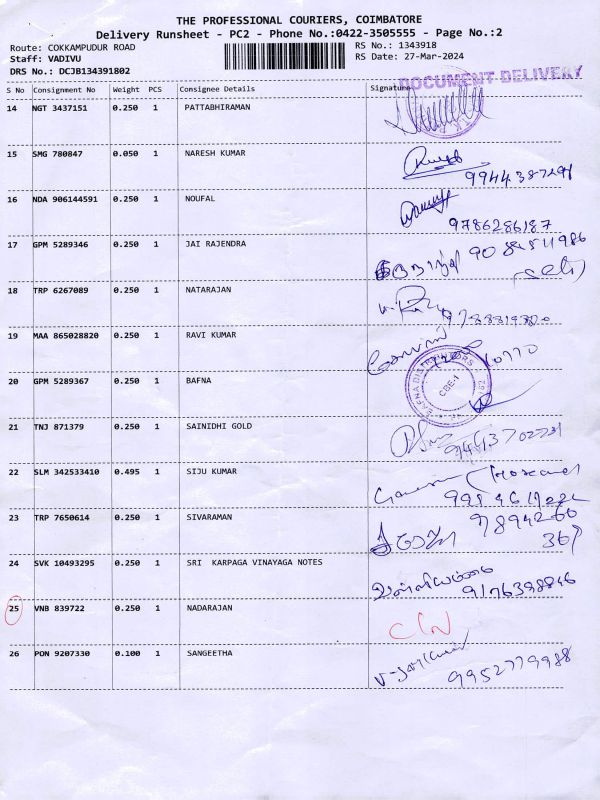 THE PROFESSIONAL COURIERS, COIMBATORE
Delivery Runsheet - PC2 - Phone No.:0422-3505555 - Page No.:2
Route: COKKAMPUDUR ROAD RS No.: 1343918
Staff: VADIVU RS Date: 27-Mar-2024
DRS No.: DCJB134391802
DOCUMENT DELIVERY
S No Consignment No Weight PCS Consignee Details Signature
14 NGT 3437151 0.250 1 PATTABHIRAMAN
15 SMG 780847 0.050 1 NARESH KUMAR
9944387291
16 NDA 906144591 0.250 1 NOUFAL
9786286187
17 GPM 5289346 0.250 1 JAI RAJENDRA
18 TRP 6267089 0.250 1 NATARAJAN
19 MAA 865028820 0.250 1 RAVI KUMAR
20 GPM 5289367 0.250 1 BAFNA
BAFNA DISTRIBUTORS
CBE-1
21 TNJ 871379 0.250 1 SAINIDHI GOLD
22 SLM 342533410 0.495 1 SIJU KUMAR
23 TRP 7650614 0.250 1 SIVARAMAN
24 SVK 10493295 0.250 1 SRI KARPAGA VINAYAGA NOTES
9176398846
25 VNB 839722 0.250 1 NADARAJAN
26 PON 9207330 0.100 1 SANGEETHA
9952779988